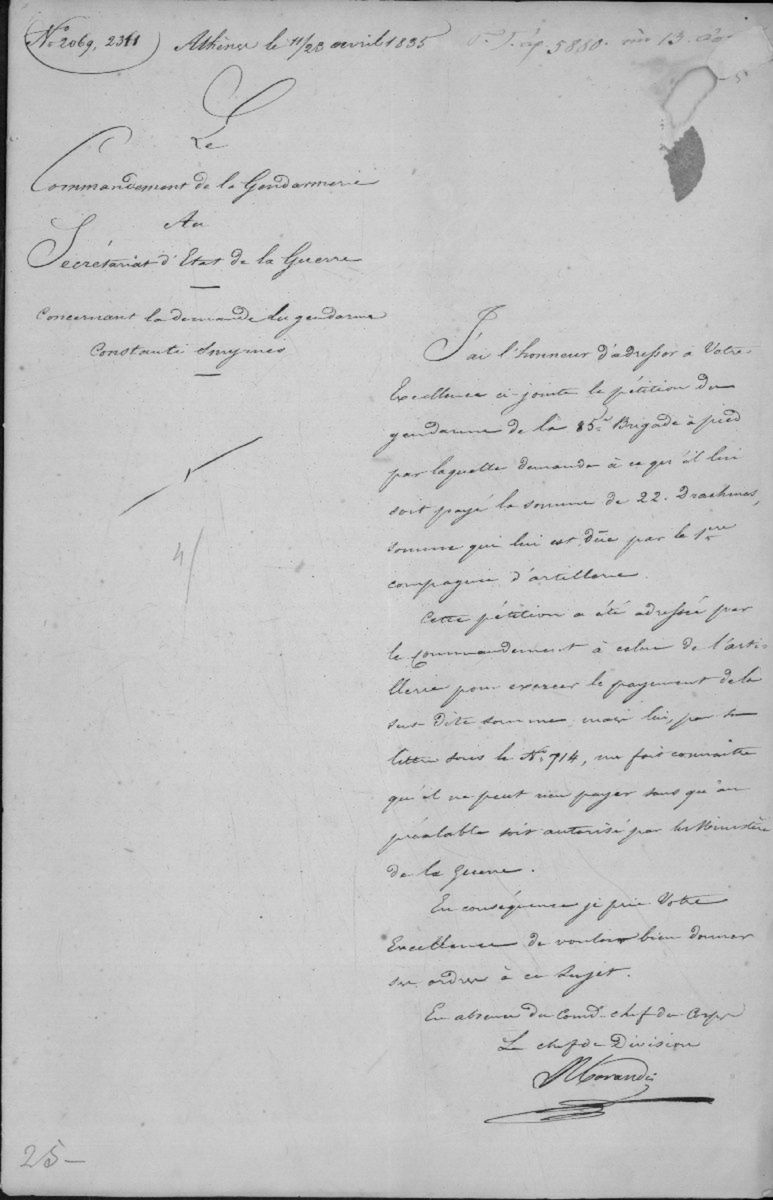 No 2069, 2311 Athènes le 11/23 avril 1835
5880. 13.
Le
Commandement de la Gendarmerie
Au
Secrétariat d'Etat de la Guerre
Concernant la demande du gendarme
Constanti Smyrnis
J'ai l'honneur d'adresser à Votre
Excellence ci-jointe la pétition du
gendarme de la 85e Brigade à pied
par laquelle demande à ce qu'il lui
soit payé la somme de 22. Drachmes,
somme qui lui est düe par le 1ere
compagnie d'artillerie.
Cette pétition a été adressée par
le Commandement à celui de l'arti-
llerie pour exercer le payement de la
sus dite somme, mais lui, par sa
lettre sous le No. 714, me fais connaitre
qu'il ne peut rien payer sans qu'au
préalable soit autorisé par le Ministère
de la Guerre.
En conséquence je prie Votre
Excellence de vouloir bien donner
ses ordres à ce sujet.
En absence du Comd. chef du Corps
Le chef de Division
Morandi
4/
25-